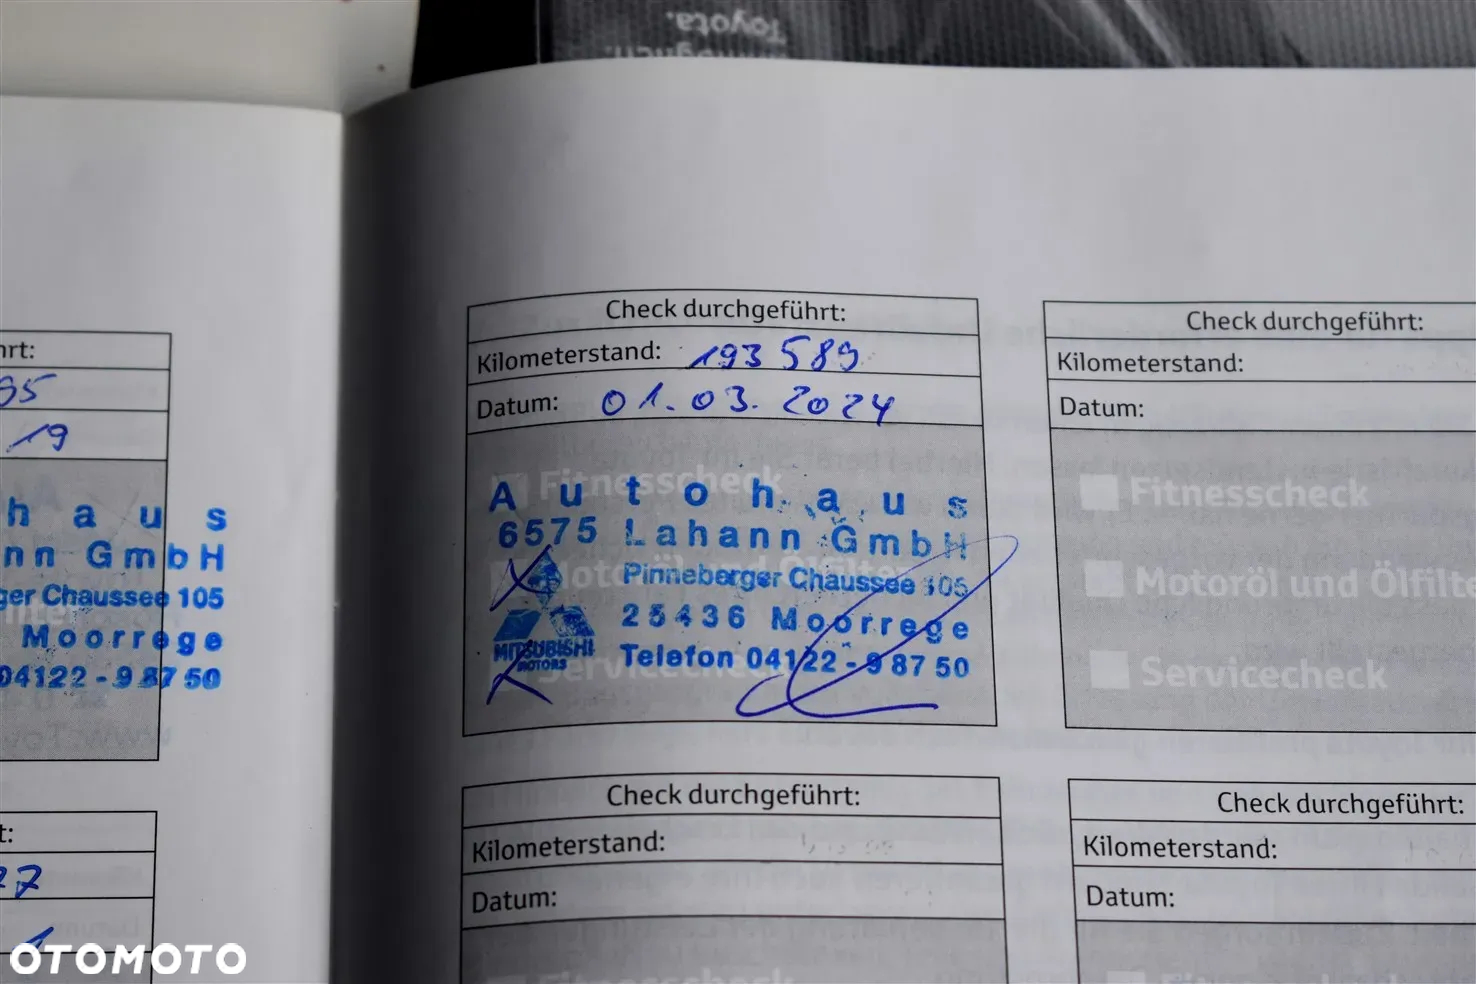 Toyota.
hrt:
95
19
h a u s
nn GmbH
ger Chaussee 105
Moorrege
04122 - 9 87 50
t:
27
1
Check durchgeführt:
Kilometerstand: 193 589
Datum: 01.03.2024
Fitnesscheck
Autohaus
6575 Lahann GmbH
Motoröl und Ölfilter
Pinneberger Chaussee 105
25436 Moorrege
MITSUBISHI
MOTORS
Telefon 04122 - 9 87 50
Servicecheck
Check durchgeführt:
Kilometerstand:
Datum:
Fitnesscheck
Motoröl und Ölfilte
Servicecheck
Check durchgeführt:
Kilometerstand:
Datum:
Fitnesscheck
Check durchgeführt:
Kilometerstand:
Datum:
Fitnesscheck
OTOMOTO